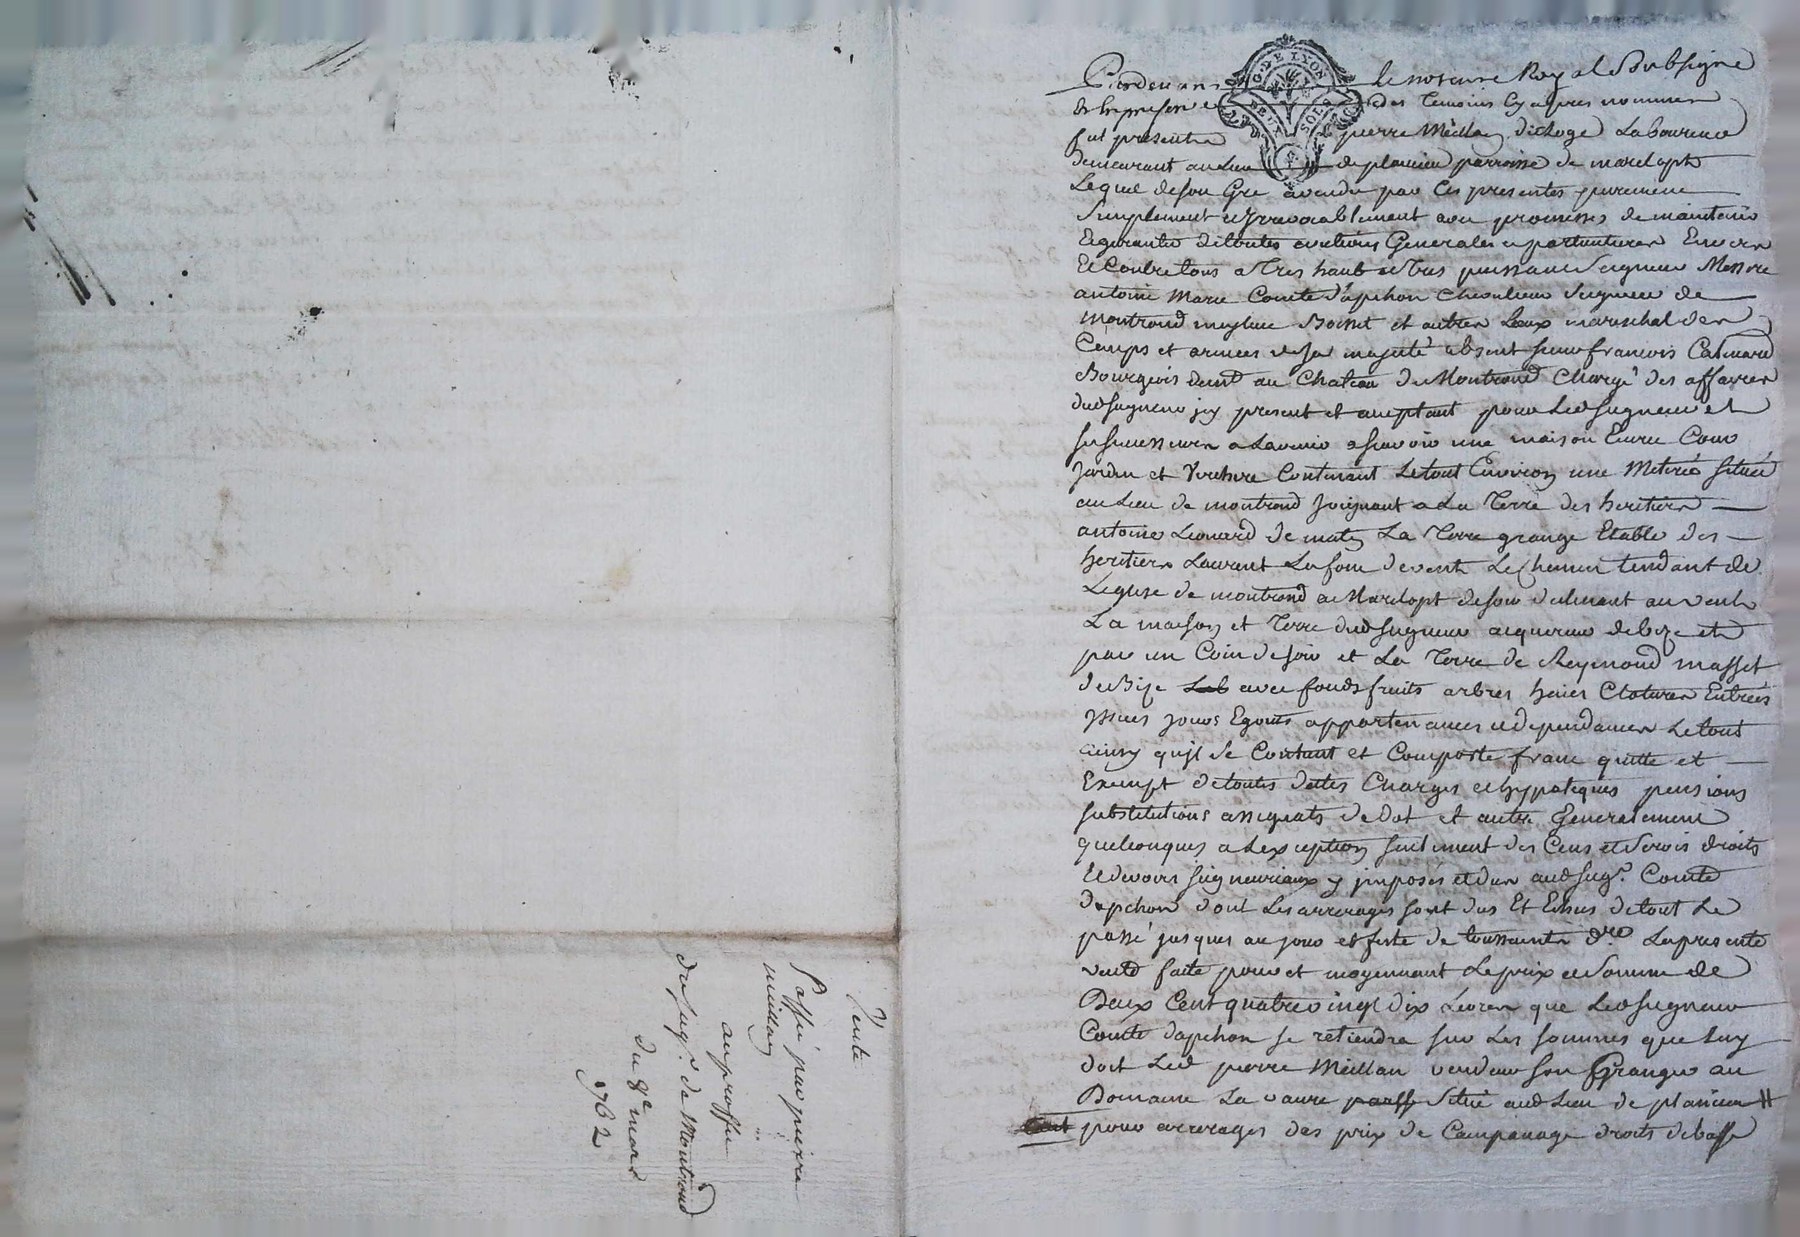 Vente
Passé par pierre
meillan
au proffit
du seigr. de Montrond
du 8e mars
1762
G. DE LYON
DEUX SOLS
Pardevans le notaire Royal Soubsigné
et en presence des Temoins Cy apres nommes
fut presente pierre Meillan dit Loge Laboureur
demeurant au Lieu de plancieu parroisse de marclopt
Lequel de son Gré a vendu par Ces presentes purement
Simplement et Yrrevocablement avec promesses de maintenir
Et garantir de toutes evictions Generales et particulieres Envers
Et Contre tous a Tres haut et Tres puissant Seigneur Messire
antoine Marie Comte d'apchon Chevalier Seigneur de
Montrond meylieu Boisset et autres Lieux mareschal des
Camps et armées de sa majesté absent sieur francois Calmard
Bourgeois demt au Chateau de Montrond Chargé des affaires
dud seigneur jcy present et acceptant pour Led seigneur et
ses successeurs a Lavenir a scavoir une maison Curee Cour
Jardin et Verchere Contenant Le tout Environ une Meterée située
au Lieu de montrond Joignant a La Terre des heritiers
antoine Leonard de matin La Terre grange Etable des
heritiers Laurent Lafont de vent Le Chemin tendant de
Leglise de montrond a Marclopt de soir declinant au vent
La maison et Terre dud seigneur acquereur de bize et
par un Coin de soir et La Terre de Reymond masset
de Bize avec fonds fruits arbres haies Clotures Entrées
Yssues Jours Egouts appartenances et dependances Le tout
ainsy qujl se Contient et Comporte franc quitte et
Exempt de toutes dettes Charges et hypoteques pensions
substitutions assignats de dot et autre Generalement
quelconques a Lexception seulement des Cens et Servis droits
Et devoirs seigneuriaux y jmposés et dus aud seigr. Comte
dapchon dont Les arrerages sont dus Et Echus de tout Le
passé jusques au jour et feste de toussaints dre La presente
vente faite pour et moyennant Le prix et Somme de
Deux Cent quatre vingt dix Livres que Led seigneur
Comte dapchon se retiendra sur Les sommes que Luy
doit Led pierre Meillan vendeur son Granger au
Domaine La vaure situé aud Lieu de plancieu #
pour arrerages des prix de Campanage droits de basse